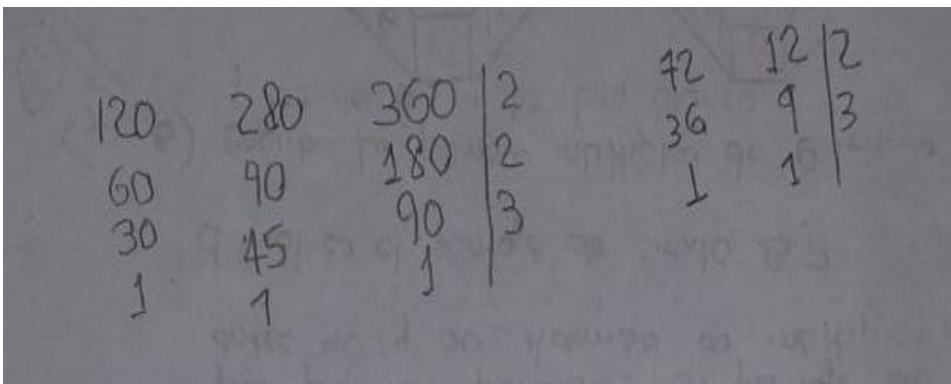 120 280 360 | 2
60 90 180 | 2
30 45 90 | 3
1 1 1
72 12 | 2
36 9 | 3
1 1